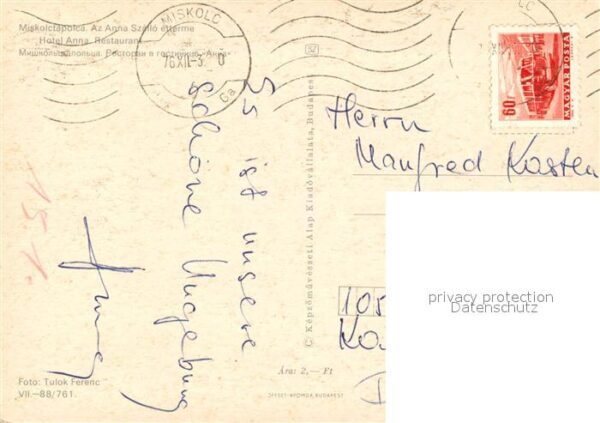 Miskolctapolca. Az Anna Szálló étterme
Hotel Anna. Restaurant
Мишкольцтапольца. Ресторан в гостинице «Анна»
MISKOLC
LC
60f
MAGYAR POSTA
Es ist unsere
schöne Umgebung
15.1.
Foto: Tulok Ferenc
VII.—88/761.
© Képzőművészeti Alap Kiadóvállalata, Budapest
Ára: 2,— Ft
OFFSET-NYOMDA, BUDAPEST
Herrn
Manfred Kasten
105
Ka
privacy protection
Datenschutz